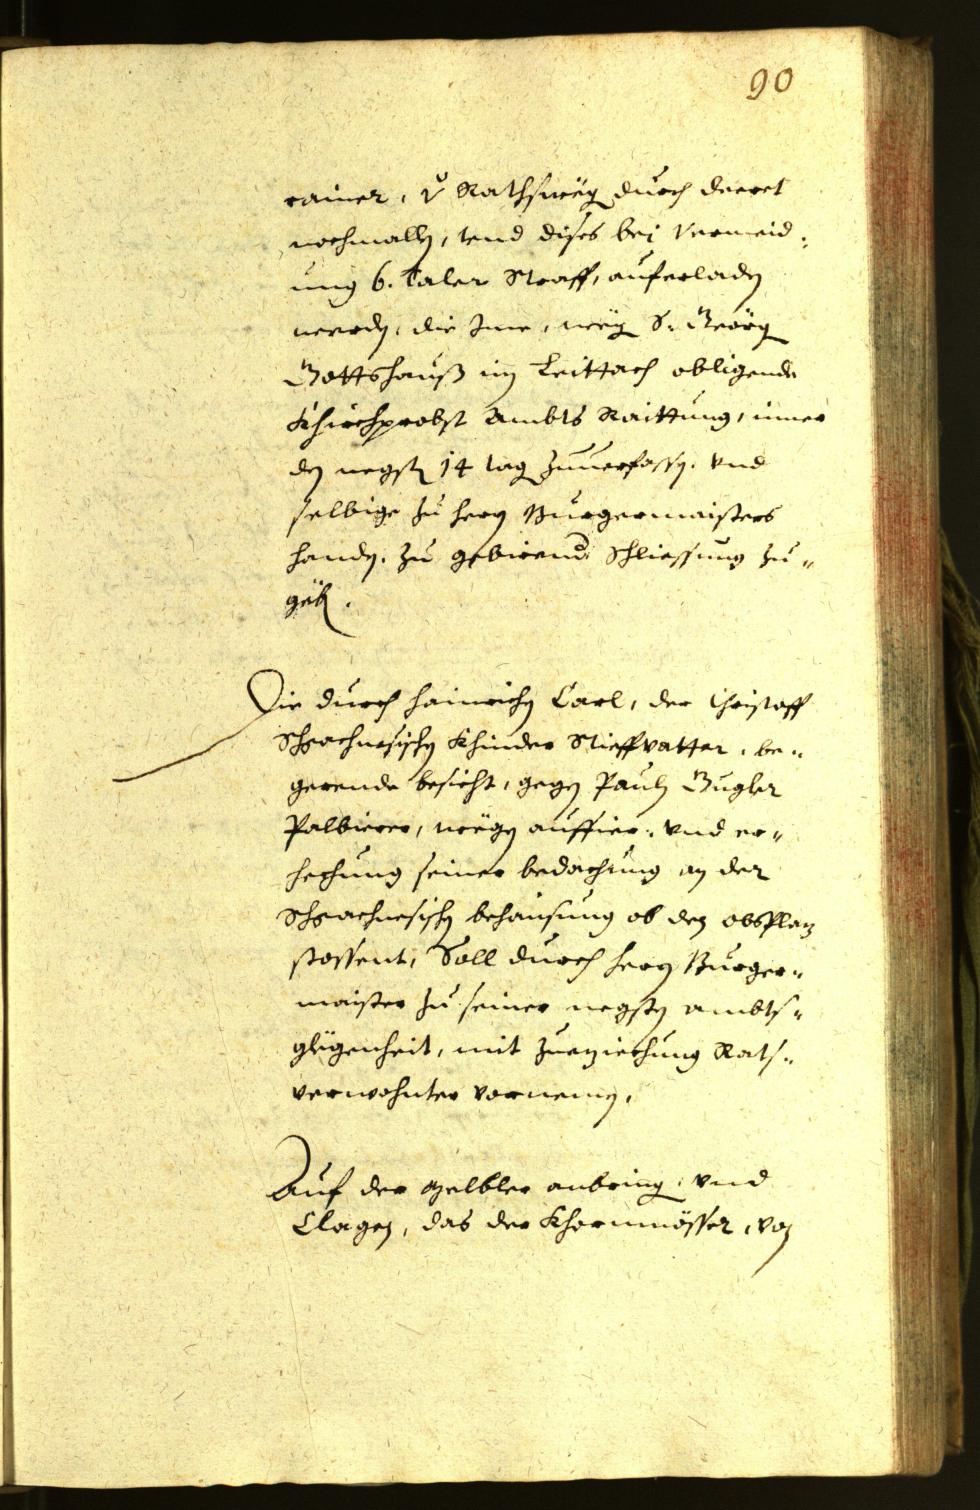 90
rainer, v Rathsweg durch decret
nochmalln, vnd dises bei Vermeid¬
ung 6. Taler Straff, auferladn
werdn, die Ime, weg S: Geörg
Gottshauß im Leittach obligende
Khirchprobst Ambts Raittung, inner
dn negstn 14 tag zuuerfassn. vnd
selbige zu hern Burgermaisters
handn, zu gebirende Schliessung zu¬
gebn.
Die durch Hainrichn Carl, der Christoff
Schrachnesischn Khinder Stieffvatter, be¬
gerende besicht, gegn Pauln Gugler
Palbierer, wegn auffier: vnd er¬
hechung seiner bedachung an der
Schrachnesischn behausung ob den obsplaz
stossent, Soll durch hern Burger¬
maister zu seiner negstn ambts¬
glegenheit, mit zueziechung Rats¬
verwohnter vornemn.
Auf der Melbler anbring: vnd
Clagen, das der Khornmösser, von